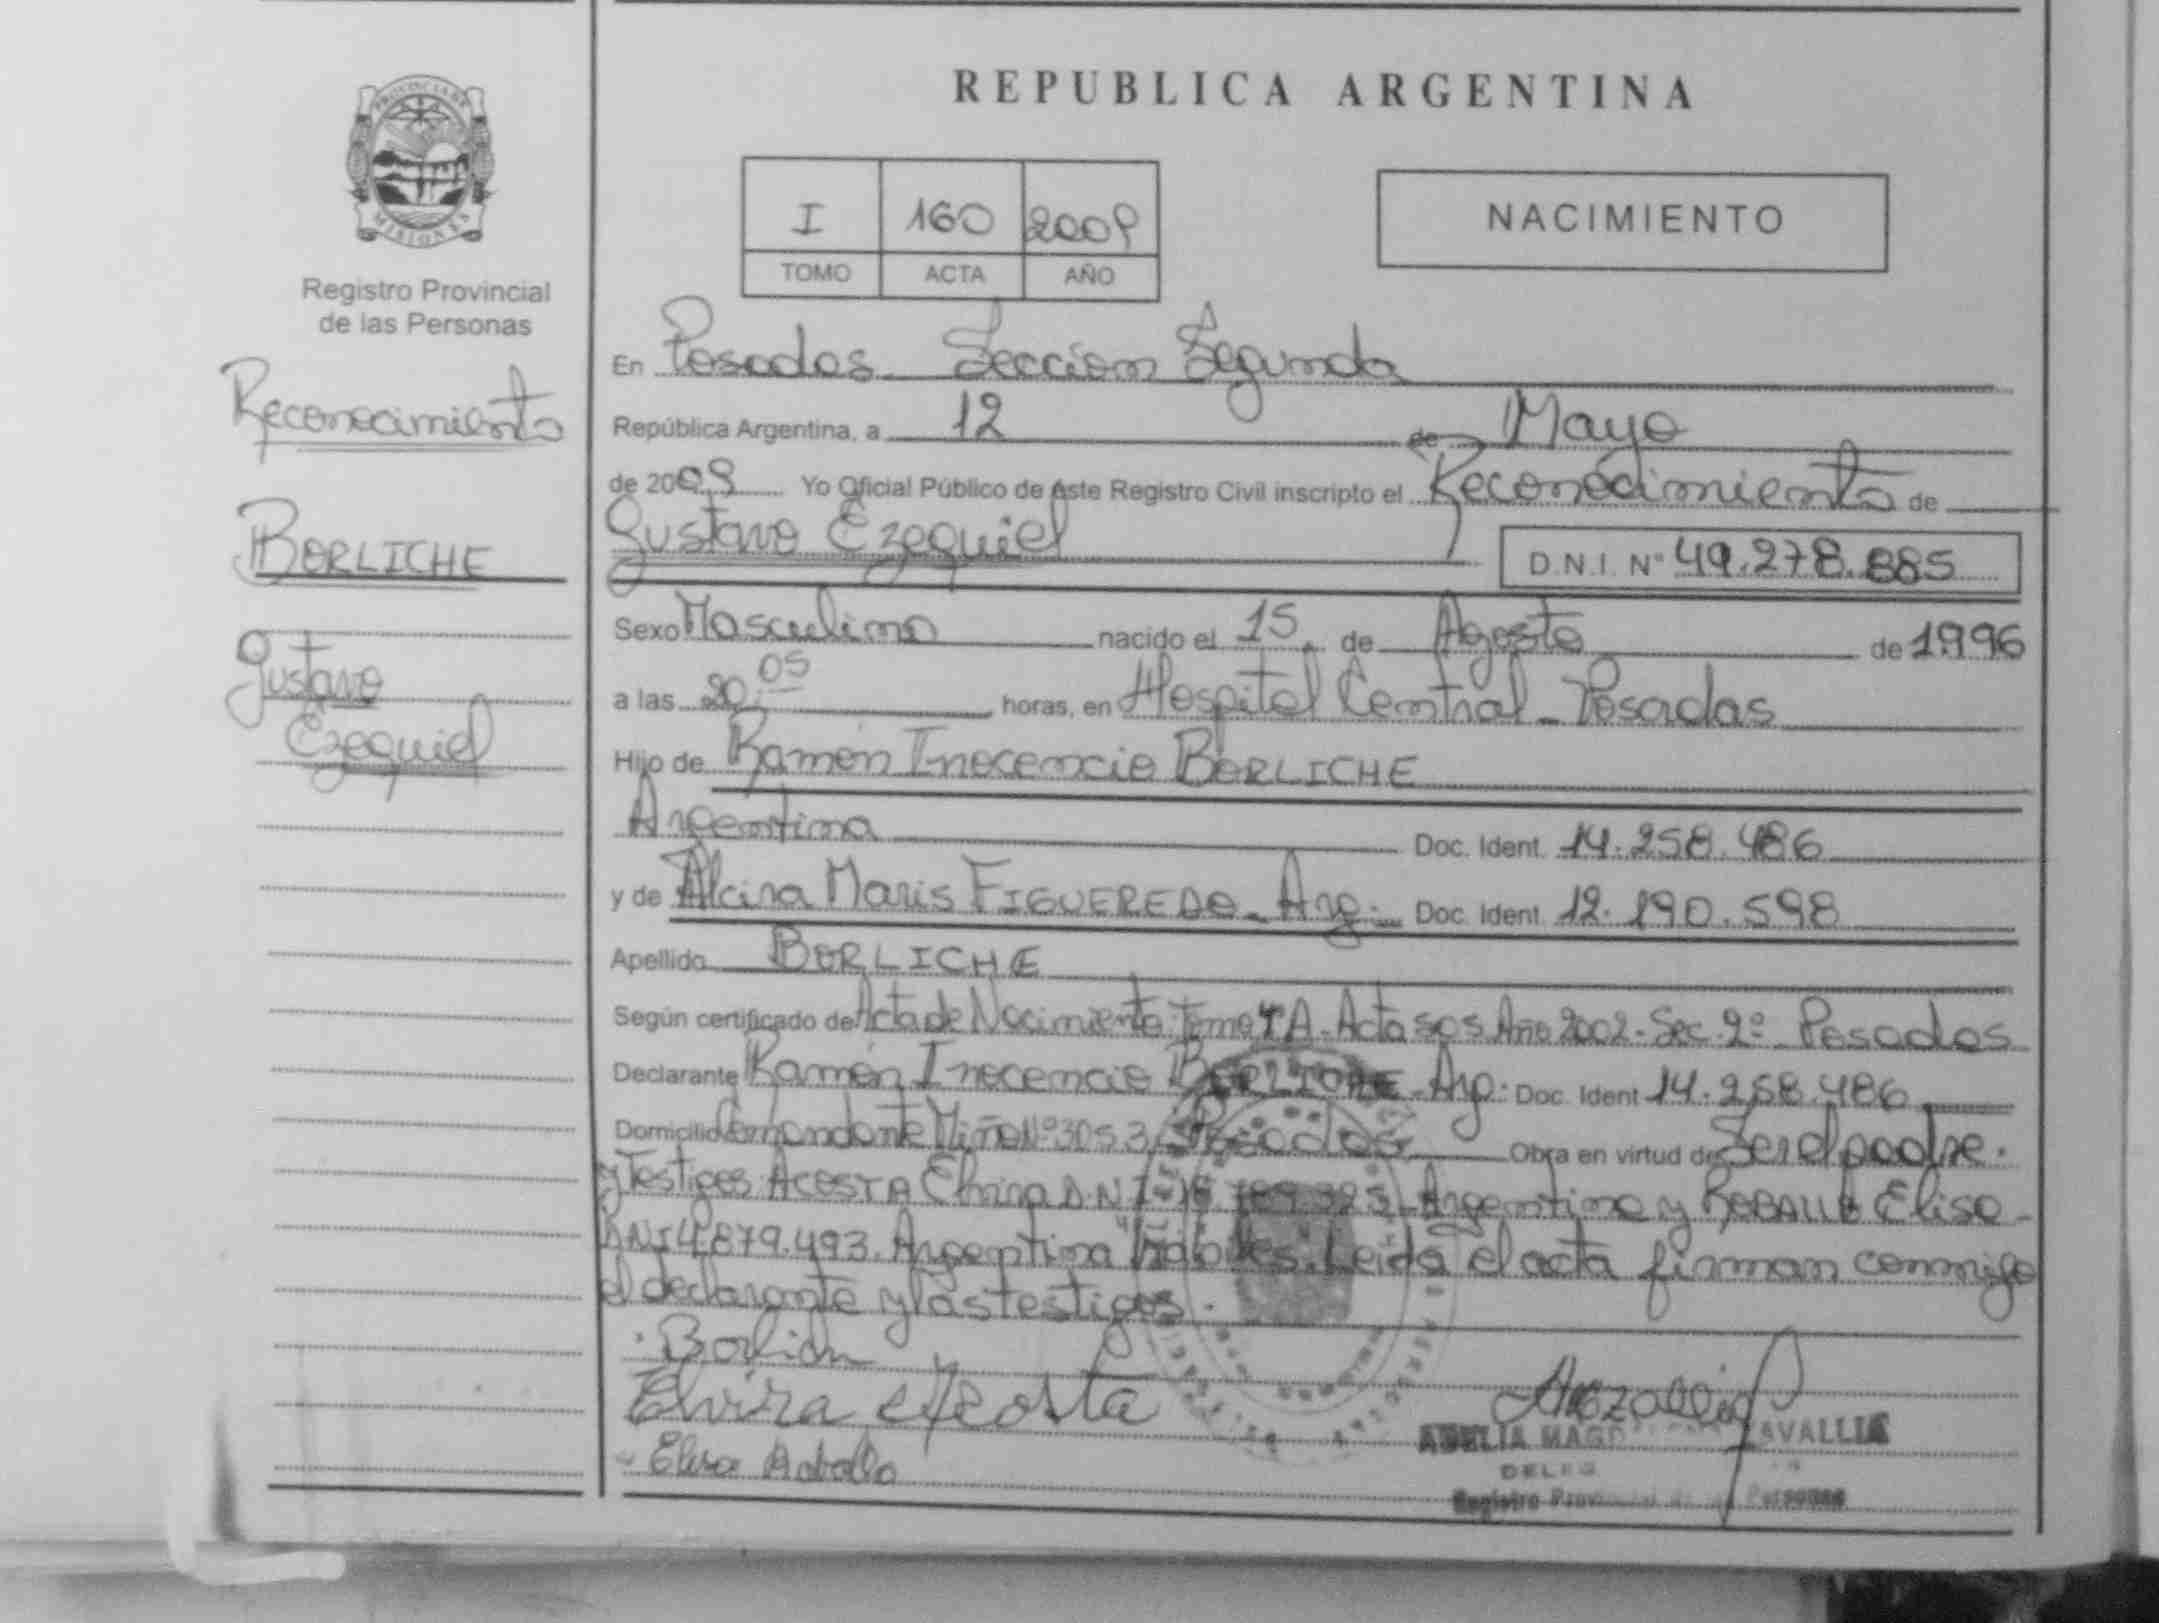 REPUBLICA ARGENTINA
PROVINCIA DE
MISIONES
Registro Provincial
de las Personas
Reconocimiento
BORLICHE
Gustavo
Ezequiel
I 160 2009
TOMO ACTA AÑO
NACIMIENTO
En Posadas Sección Segunda
República Argentina, a 12 de Mayo
de 2009 Yo Oficial Público de éste Registro Civil inscripto el Reconocimiento de
Gustavo Ezequiel D.N.I. Nº 49.278.885
Sexo Masculino nacido el 15 de Agosto de 1996
a las 20:05 horas, en Hospital Central - Posadas
Hijo de Ramón Inocencio BORLICHE
Argentina Doc. Ident. 14.258.486
y de Alcira Maris FIGUEREDO - Arg. Doc. Ident. 12.190.598
Apellido BORLICHE
Según certificado de Acta de Nacimiento Tomo A - Acta 505 Año 2002 - Sec. 2º Posadas
Declarante Ramón Inocencio BORLICHE - Arg. Doc. Ident 14.258.486
Domicilio Comandante Miño Nº 3053 Posadas Obra en virtud de Ser el padre.
y Testigos ACOSTA Elvira D.N.I. Argentina y Elisa -
DNI 4.879.493. Argentina hábiles. Leida el acta firman conmigo
el declarante y las testigos.
Elvira Acosta
Elisa
AVALLIA
Registro Provincial de las Personas